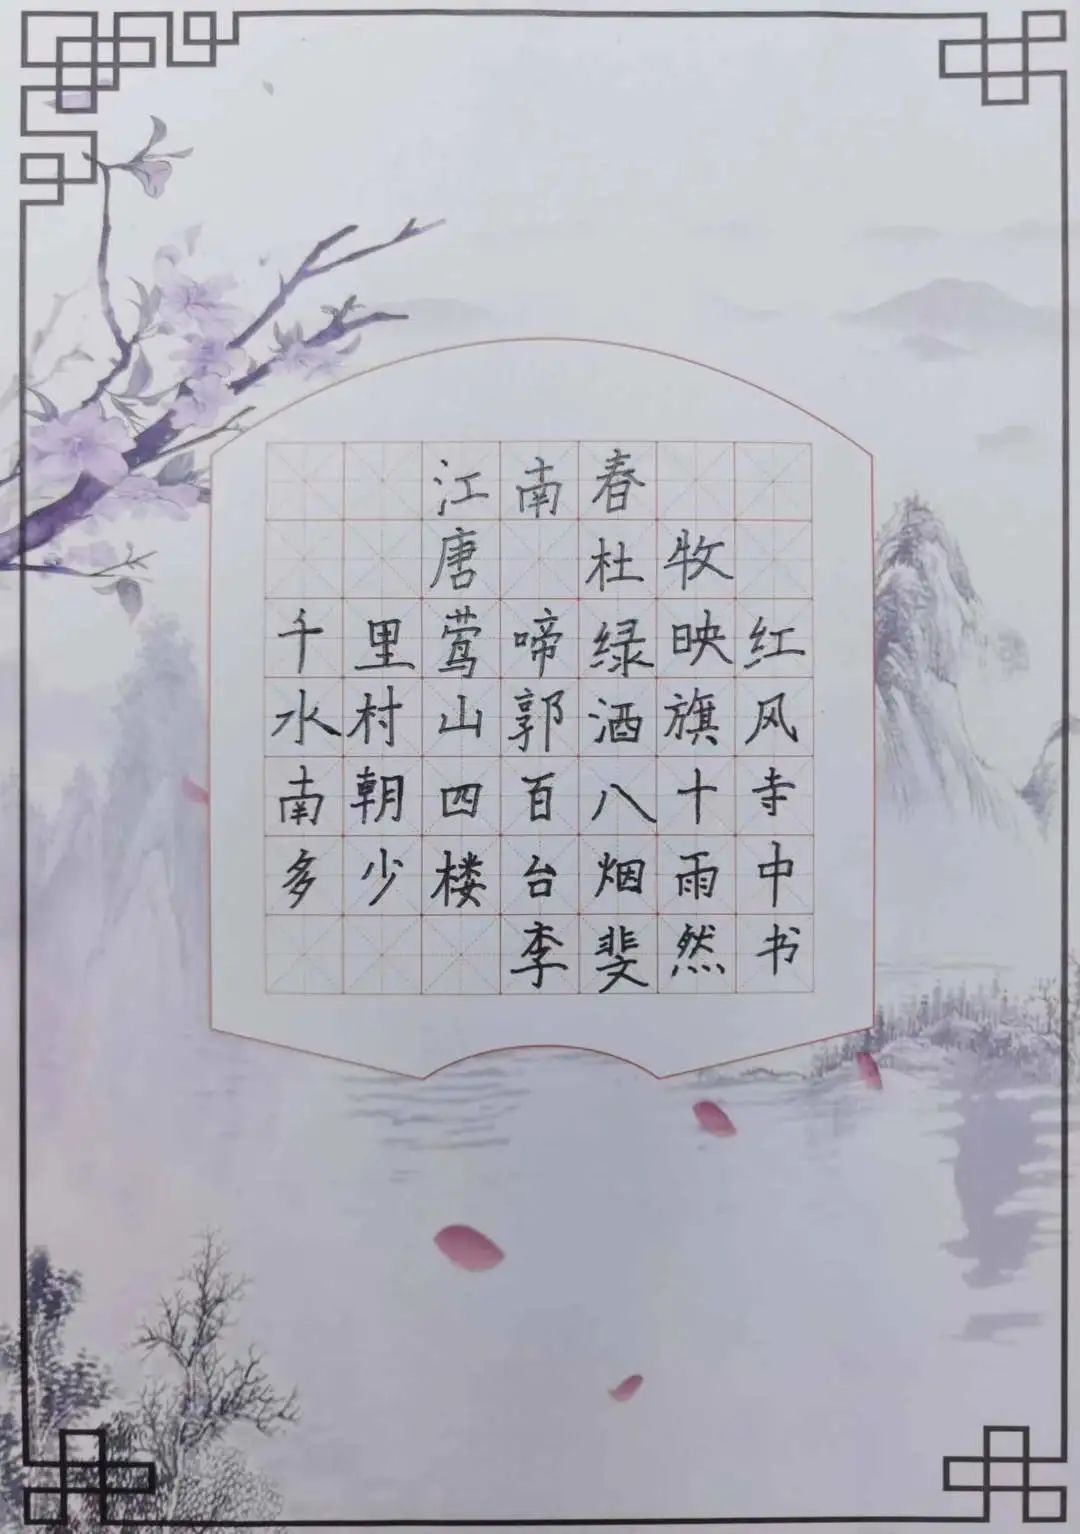 江南春
唐 杜牧
千里莺啼绿映红
水村山郭酒旗风
南朝四百八十寺
多少楼台烟雨中
李斐然书